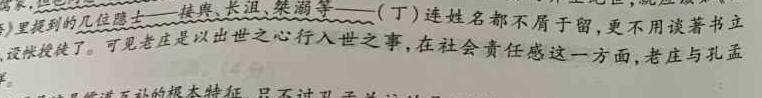 》里提到的几位隐士——接舆、长沮、桀溺等——(丁)连姓名都不屑于留,更不用谈著书立
、设帐授徒了。可见老庄是以出世之心行入世之事,在社会责任感这一方面,老庄与孔孟
样。
道互补的根本特征,只不过孔子